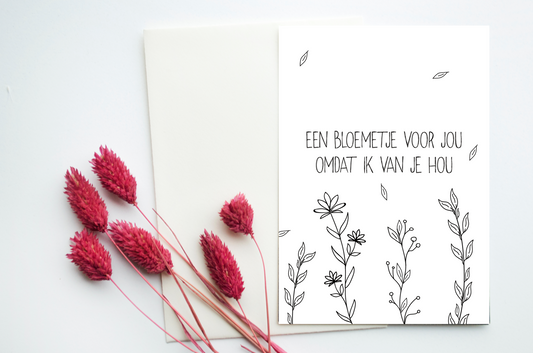 EEN BLOEMETJE VOOR JOU
OMDAT IK VAN JE HOU